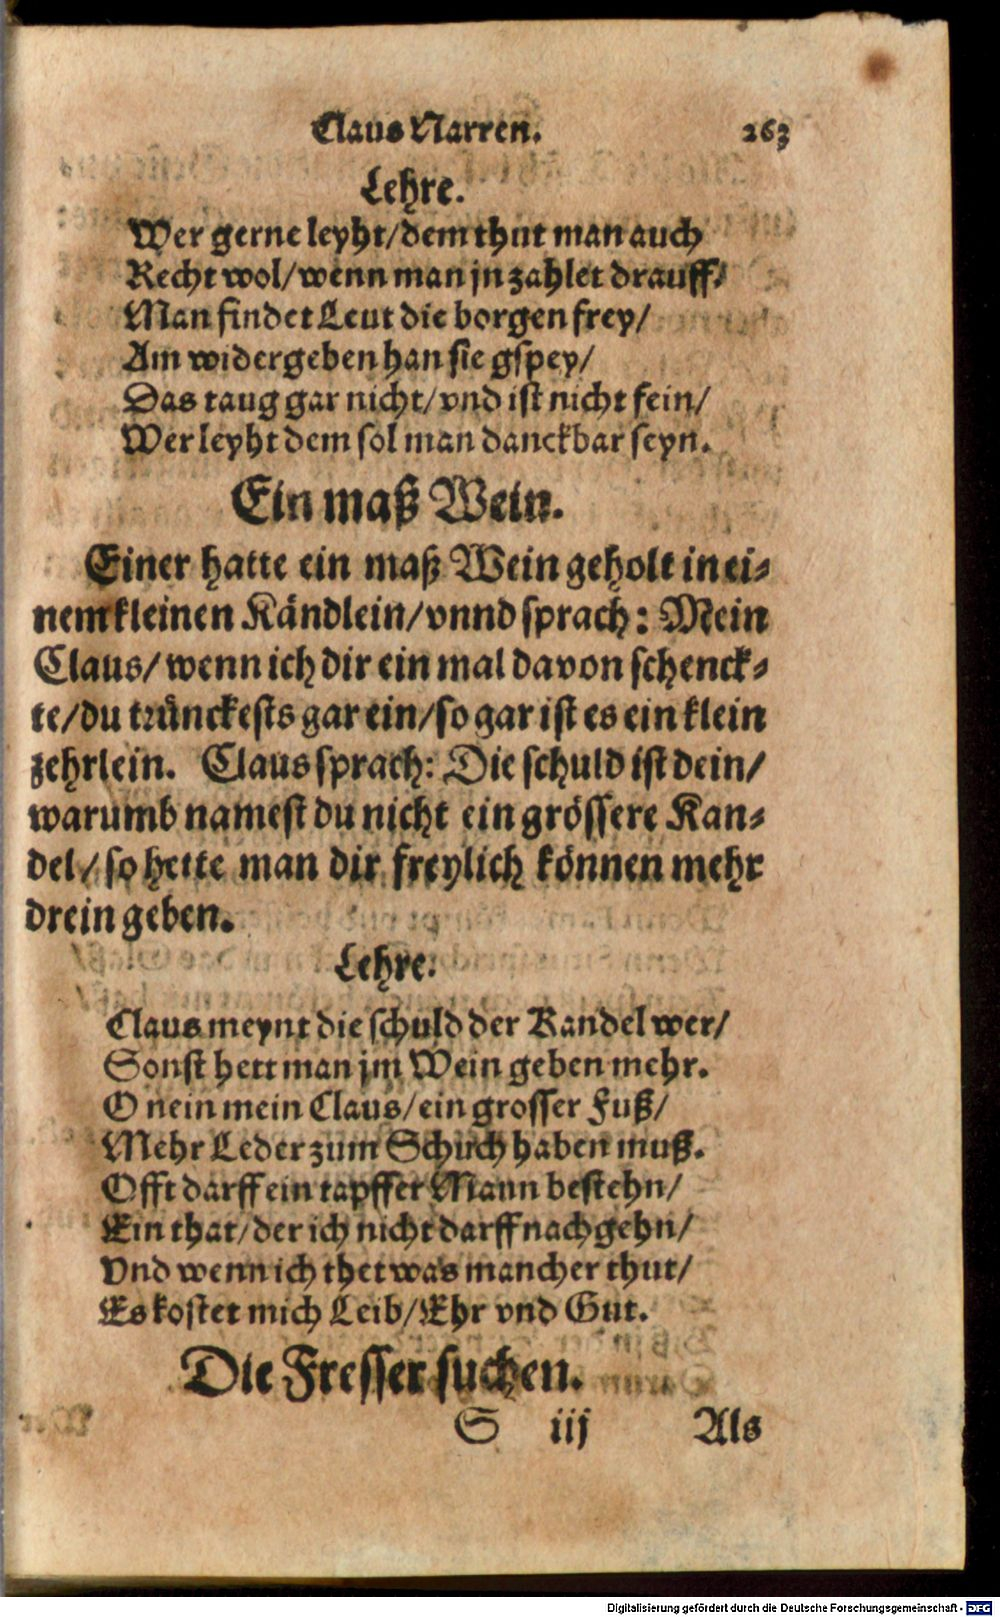 Claus Narren. 263
Lehre.
Wer gerne leyht/dem thut man auch
Recht wol/wenn man jn zahlet drauff/
Man findet Leut die borgen frey/
Am widergeben han sie gspey/
Das taug gar nicht/vnd ist nicht fein/
Wer leyht dem sol man danckbar seyn.
Ein maß Wein.
Einer hatte ein maß Wein geholt in ei-
nem kleinen Kändlein/vnnd sprach: Mein
Claus/wenn ich dir ein mal davon schenck-
te/du trünckests gar ein/so gar ist es ein klein
zehrlein. Claus sprach: Die schuld ist dein/
warumb namest du nicht ein grössere Kan-
del/so hette man dir freylich können mehr
drein geben.
Lehre.
Claus meynt die schuld der Kandel wer/
Sonst hett man jm Wein geben mehr.
O nein mein Claus/ein grosser Fuß/
Mehr Leder zum Schuch haben muß.
Offt darff ein tapffer Mann bestehn/
Ein that/der ich nicht darff nachgehn/
Vnd wenn ich thet was mancher thut/
Es kostet mich Leib/Ehr vnd Gut.
Die Fresser suchen.
S iij Als
Digitalisierung gefördert durch die Deutsche Forschungsgemeinschaft - DFG